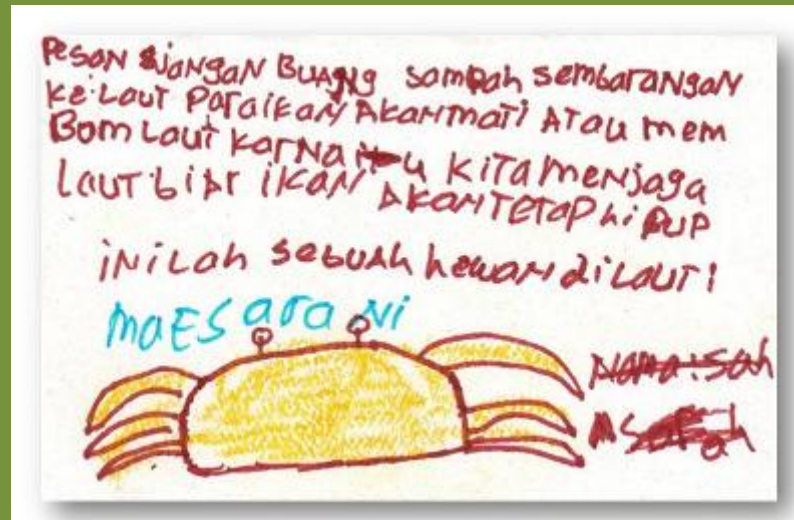 PESAN JANGAN BUANG SAMPAH SEMBARANGAN
KE LAUT PARA IKAN AKAN MATI ATAU MEM
BOM LAUT KARNA ITU KITA MENJAGA
LAUT BIAR IKAN AKAN TETAP HIDUP
INILAH SEBUAH HEWAN DI LAUT!
MAESARANI